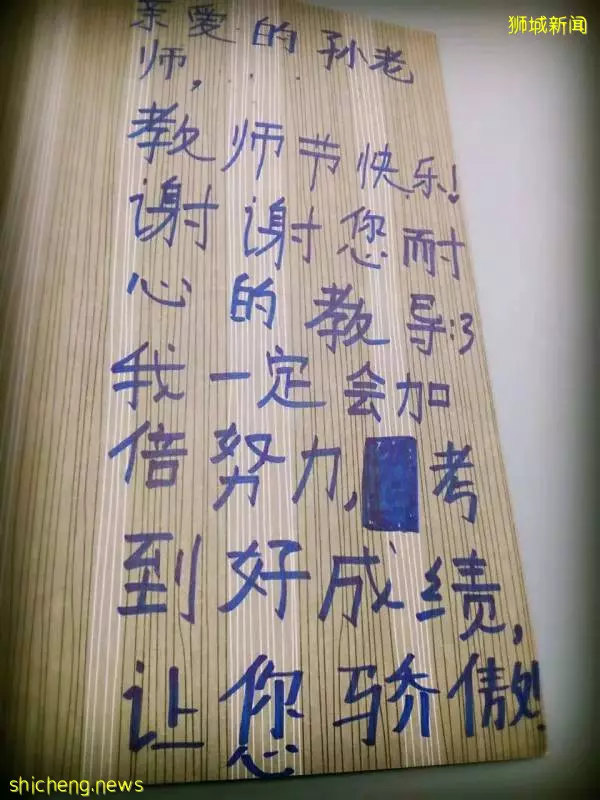 狮城新闻
亲爱的孙老
师，...
教师节快乐!
谢谢您耐
心的教导:3
我一定会加
倍努力，考
到好成绩，
让您骄傲
shicheng.news